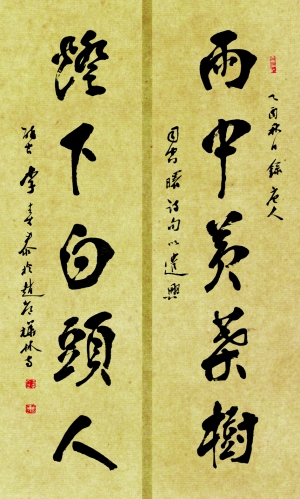 乙酉秋日錄唐人
雨中黄葉樹
司空曙詩句以遣興
燈下白頭人
李
泰於趙